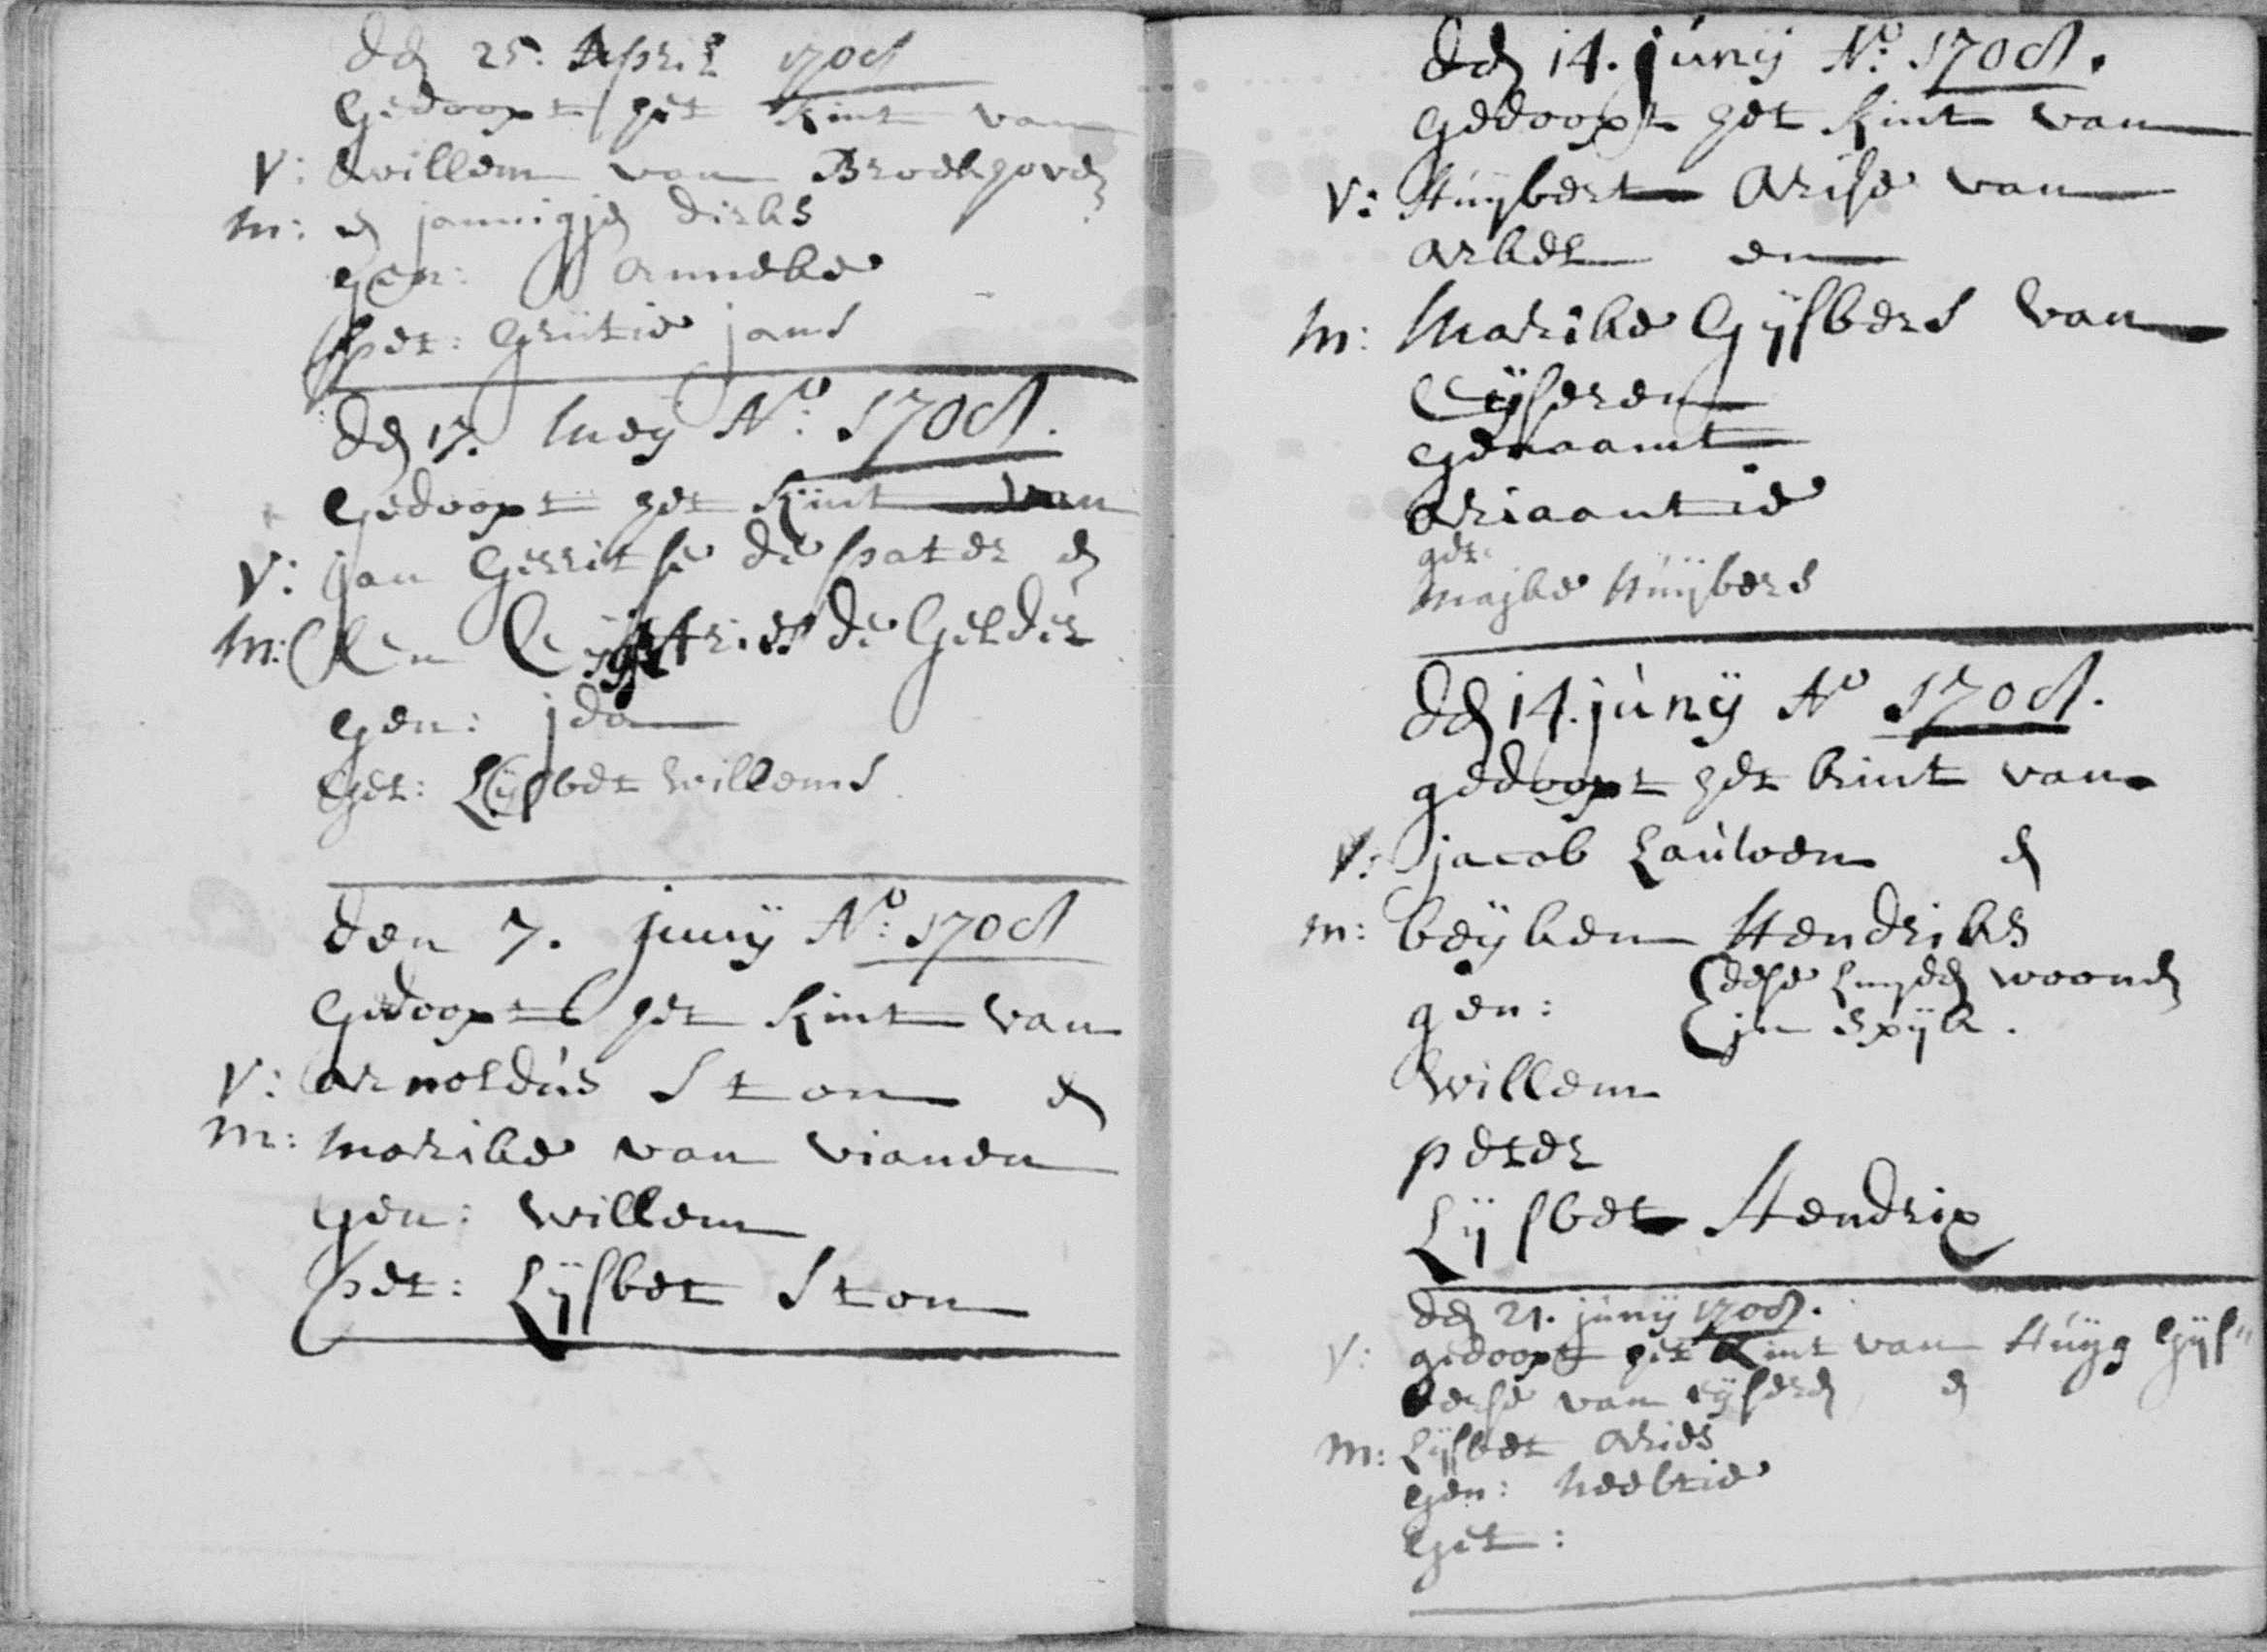 den 25. April 1708
Gedoopt het Kint van
V: Willem van Broekhoven
M: en jannigje dirks
gen: Anneke
get: Grietie jans
den 17. Meij Ao: 1708.
Gedoopt het Kint van
V: jan Gerritse de pater en
M: de Gelder
gen: jda
get: Lijsbet Willems
den 7. junij Ao: 1708
Gedoopt het Kint van
V: Arnoldus Ston en
M: Marike van vianen
gen: Willem
get: Lijsbet Ston
den 14. junij Ao: 1708.
gedoopt het Kint van
V: Huijbert Arise van
Arkel en
M: Marike Gijsbers van
Eijseren
genaamt
Ariaantie
get:
Majke Huijbers
den 14. junij Ao 1708.
gedoopt het kint van
V: jacob Lauwen en
M: beijken Hendriks
gen: dese luyden woonen
in Spijk.
Willem
peter
Lijsbet Hendrix
den 21. junij 1708.
V: gedoopt het Kint van Huijg Gijs"
berse van eijseren en
M: Lijsbet Aries
gen: Neeltie
get: